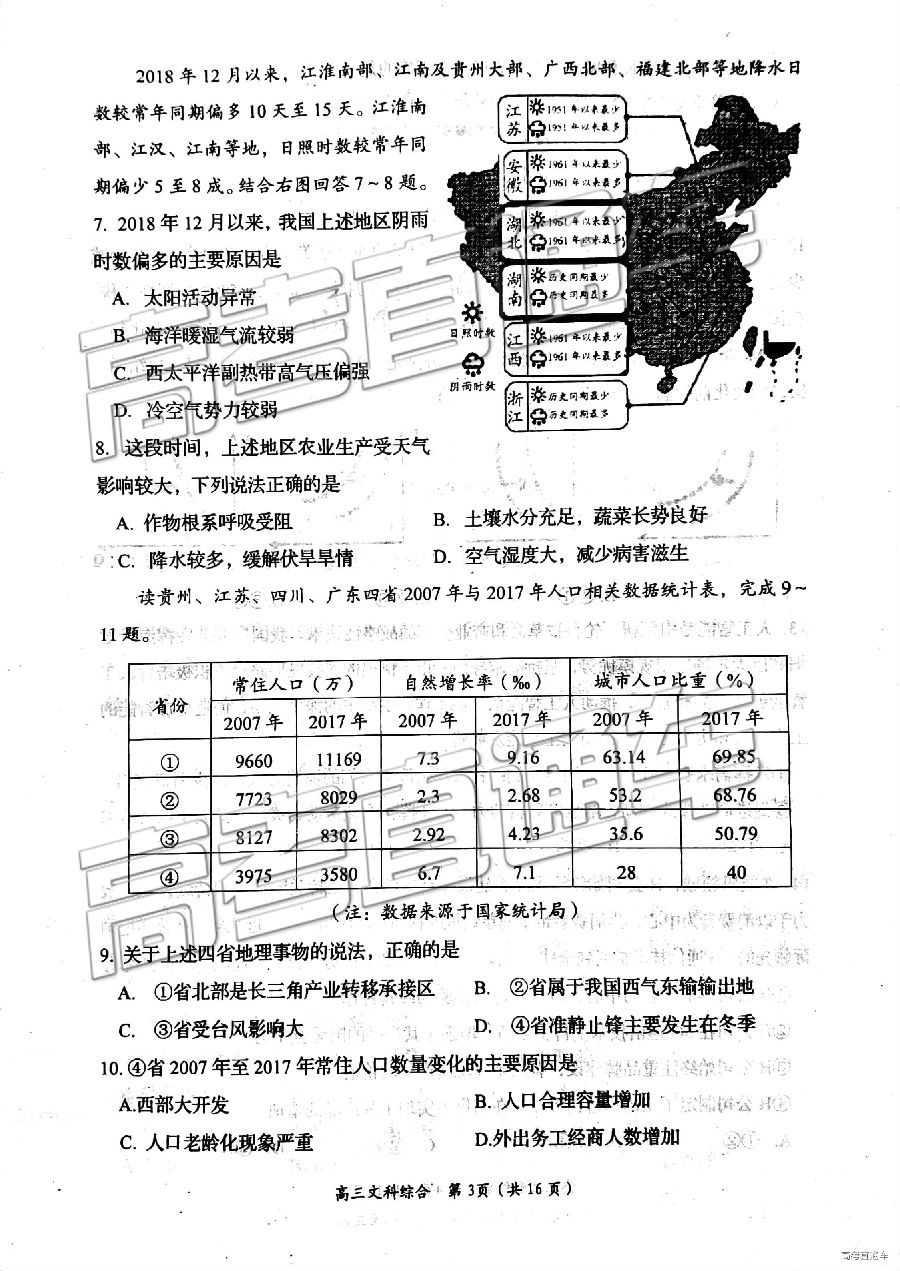 2018 年 12 月以来，江淮南部、江南及贵州大部、广西北部、福建北部等地降水日
数较常年同期偏多 10 天至 15 天。江淮南
部、江汉、江南等地，日照时数较常年同
期偏少 5 至 8 成。结合右图回答 7～8 题。
7. 2018 年 12 月以来，我国上述地区阴雨
时数偏多的主要原因是
A. 太阳活动异常
B. 海洋暖湿气流较弱
C. 西太平洋副热带高气压偏强
D. 冷空气势力较弱
江苏 1951 年以来最少
1951 年以来最多
安徽 1961 年以来最少
1961 年以来最多
湖北 1961 年以来最少
1961 年以来最多
湖南 历史同期最少
历史同期最多
江西 1961 年以来最少
1961 年以来最多
浙江 历史同期最少
历史同期最多
日照时数
阴雨时数
8. 这段时间，上述地区农业生产受天气
影响较大，下列说法正确的是
A. 作物根系呼吸受阻 B. 土壤水分充足，蔬菜长势良好
C. 降水较多，缓解伏旱旱情 D. 空气湿度大，减少病害滋生
读贵州、江苏、四川、广东四省 2007 年与 2017 年人口相关数据统计表，完成 9～
11 题。
省份 常住人口（万） 自然增长率（‰） 城市人口比重（%）
2007 年 2017 年 2007 年 2017 年 2007 年 2017 年
① 9660 11169 7.3 9.16 63.14 69.85
② 7723 8029 2.3 2.68 53.2 68.76
③ 8127 8302 2.92 4.23 35.6 50.79
④ 3975 3580 6.7 7.1 28 40
（注：数据来源于国家统计局）
9. 关于上述四省地理事物的说法，正确的是
A. ①省北部是长三角产业转移承接区 B. ②省属于我国西气东输输出地
C. ③省受台风影响大 D. ④省准静止锋主要发生在冬季
10. ④省 2007 年至 2017 年常住人口数量变化的主要原因是
A.西部大开发 B. 人口合理容量增加
C. 人口老龄化现象严重 D.外出务工经商人数增加
高三文科综合 第 3页（共 16 页）
高考直通车
高考直通车
高考直通车